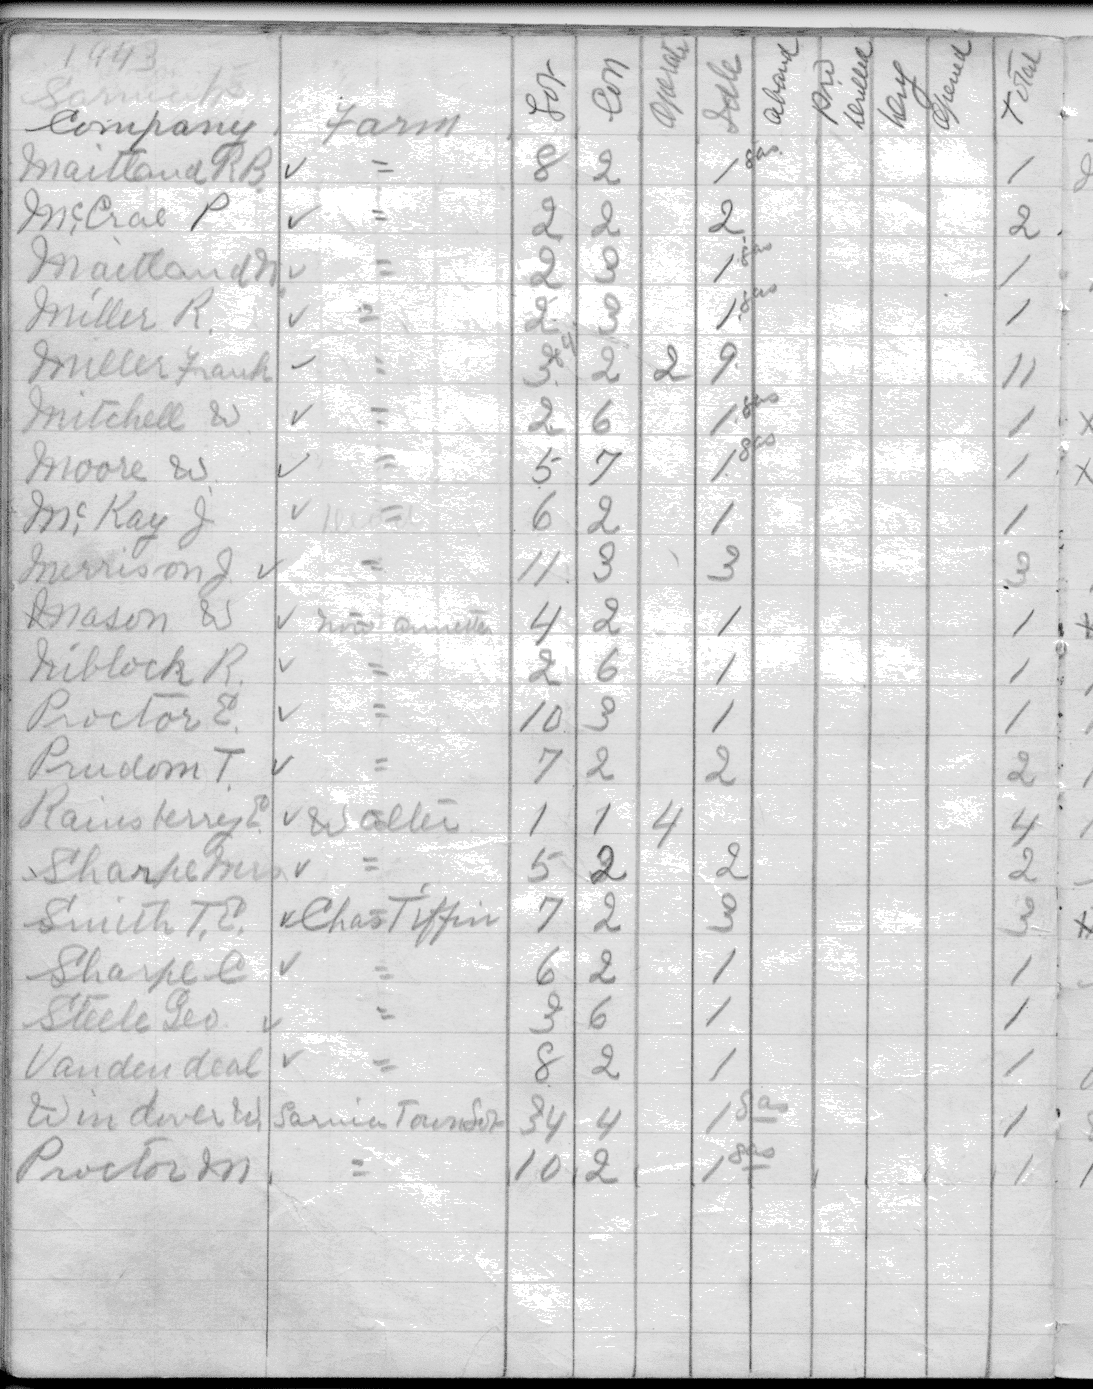 1943
Company Farm Lot Con Operate Idle Aband New Drilled Dry Opened Total
Maitland R.B. ✓ = 8 2 1 gas 1
McCrae P ✓ = 2 2 2 2
Maitland M. ✓ = 2 3 1 gas 1
Miller R. ✓ = 2 3 1 gas 1
Miller Frank ✓ = 3 & 4 2 2 9 11
Mitchell W. ✓ = 2 6 1 gas 1 x
Moore W. ✓ = 5 7 1 gas 1 x
McKay J ✓ = 6 2 1 1
Merrison J. ✓ = 11 3 3 3
Mason W ✓ 4 2 1 1 x
Niblock R. ✓ = 2 6 1 1
Proctor E. ✓ = 10 3 1 1
Prudom T. ✓ = 7 2 2 2
Rainsberry E. ✓ Walter 1 1 4 4
Sharpe ✓ = 5 2 2 2
Smith T.E. ✓ Chas Tiffin 7 2 3 3 x
Sharpe C ✓ = 6 2 1 1
Steele Geo. ✓ = 3 6 1 1
Vandendeal ✓ = 8 2 1 1
Windover W. Sarnia Township 34 4 1 gas 1
Proctor M. = 10 2 1 gas 1